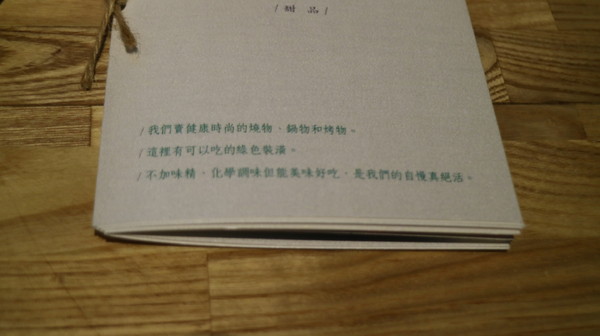 / 甜 品 /
/ 我們賣健康時尚的燒物、鍋物和烤物。
/ 這裡有可以吃的綠色裝潢。
/ 不加味精,化學調味但能美味好吃,是我們的自慢真絕活。